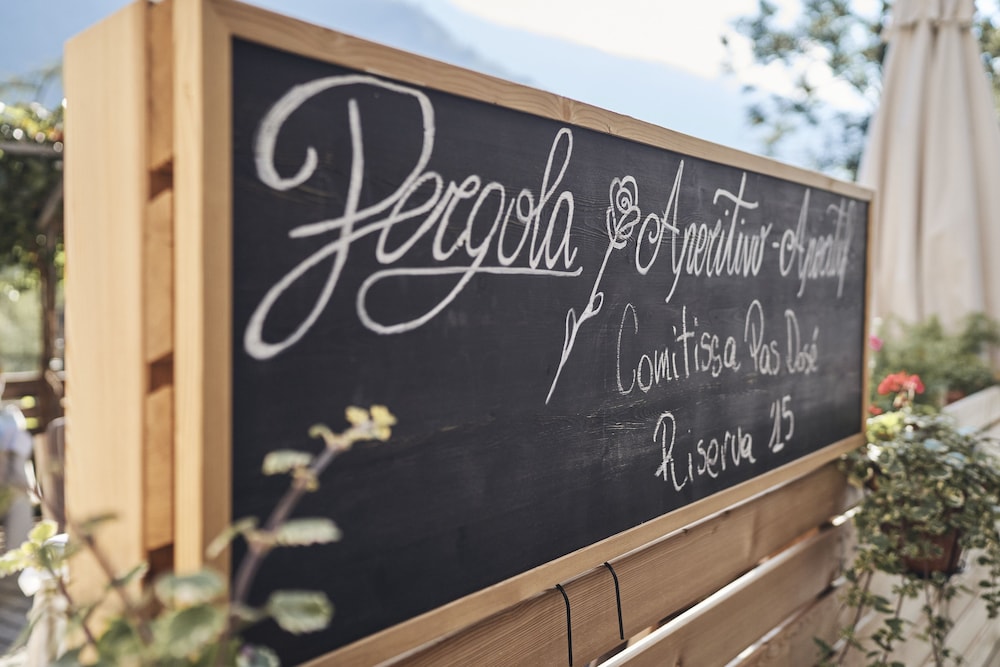 Pergola
Aperitivo - Aperitif
Comitissa Pas Dosé
Riserva 15